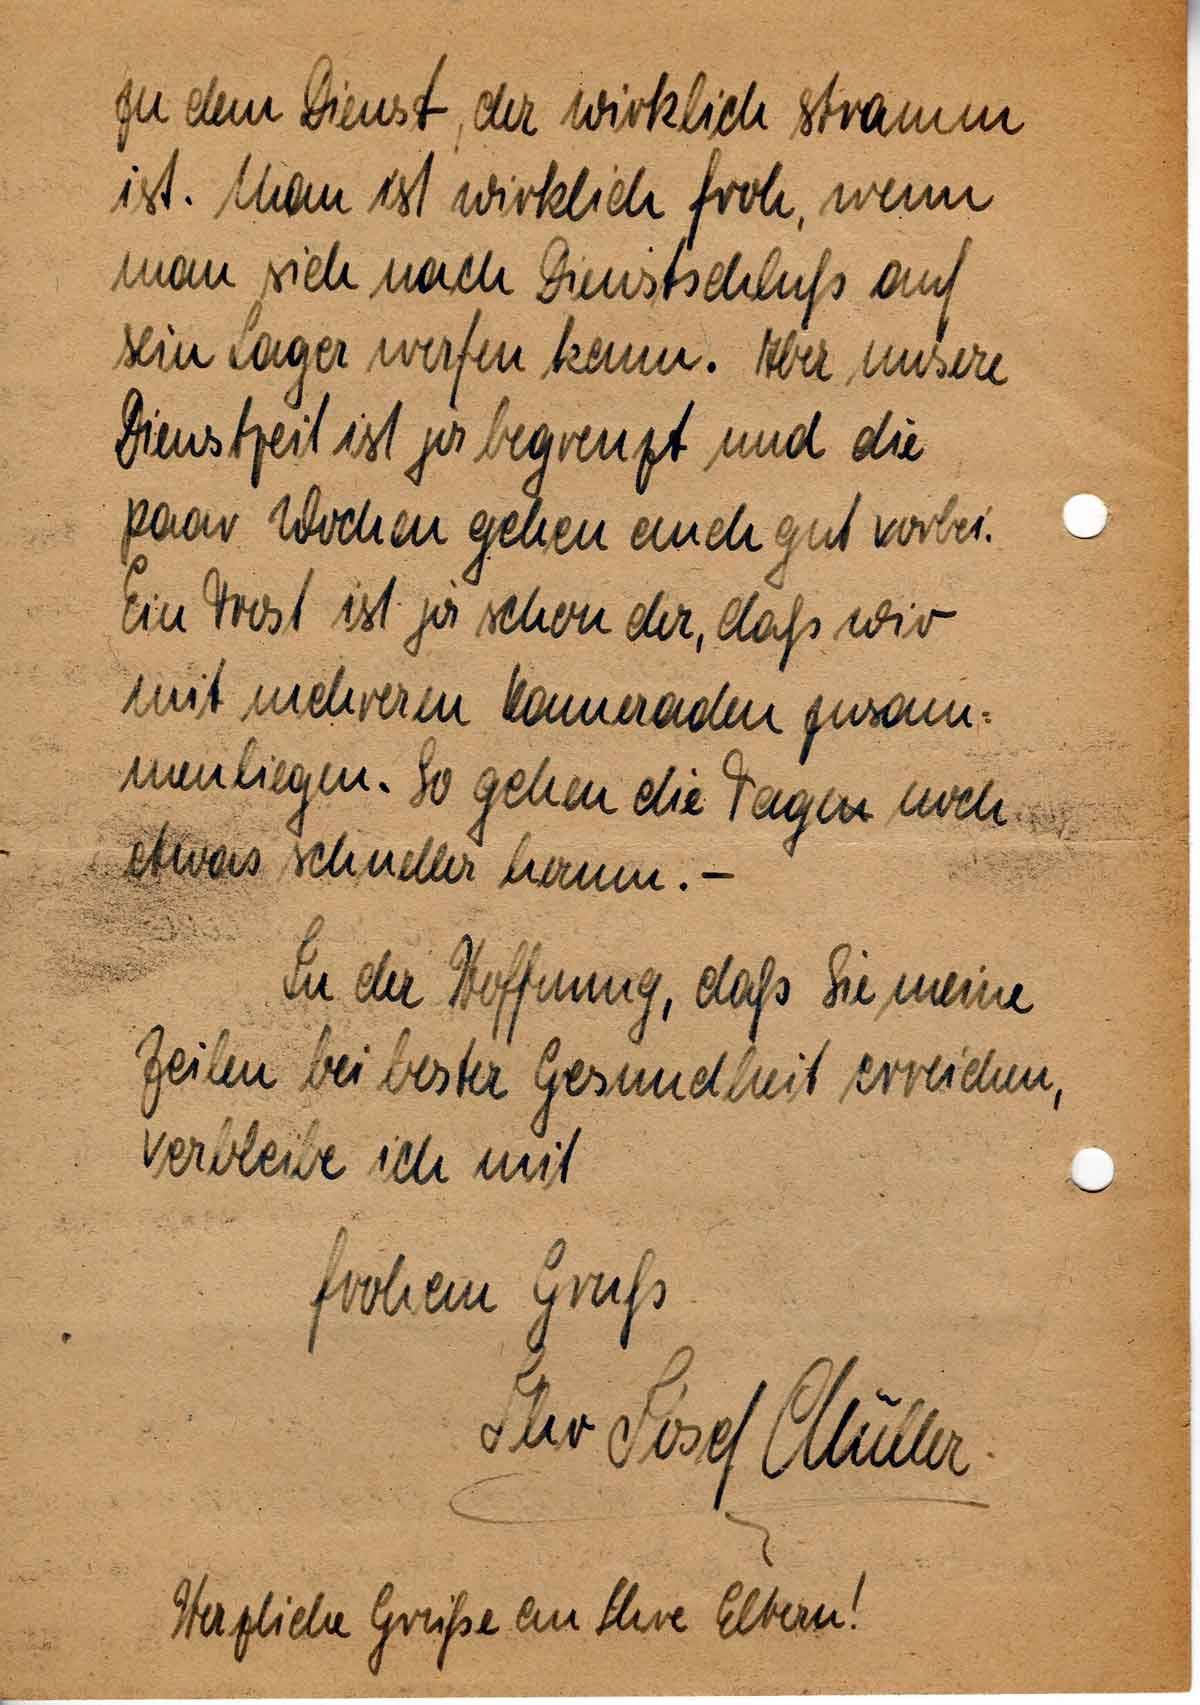 zu dem Dienst, der wirklich stramm
ist. Man ist wirklich froh, wenn
man sich nach Dienstschluß auf
sein Lager werfen kann. Aber unsere
Dienstzeit ist ja begrenzt und die
paar Wochen gehen auch gut vorbei.
Ein Trost ist ja schon der, daß wir
mit mehreren Kameraden zusam=
menliegen. So gehen die Tagen noch
etwas schneller herum. –
In der Hoffnung, daß Sie meine
Zeilen bei bester Gesundheit erreichen,
verbleibe ich mit
frohem Gruß
Ihr Josef Müller.
Herzliche Grüße an Ihre Eltern!